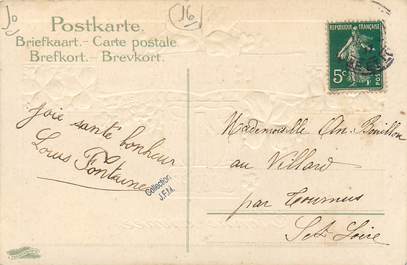 Jo
(16)
Postkarte.
Briefkaart. - Carte postale
Brefkort. - Brevkort.
REPUBLIQUE FRANÇAISE
5c
POSTES
joie santé bonheur
Louis Fontaine
Collection
J.F.M.
Mademoiselle An. Bouillon
au Villard
par Tournus
S et Loire